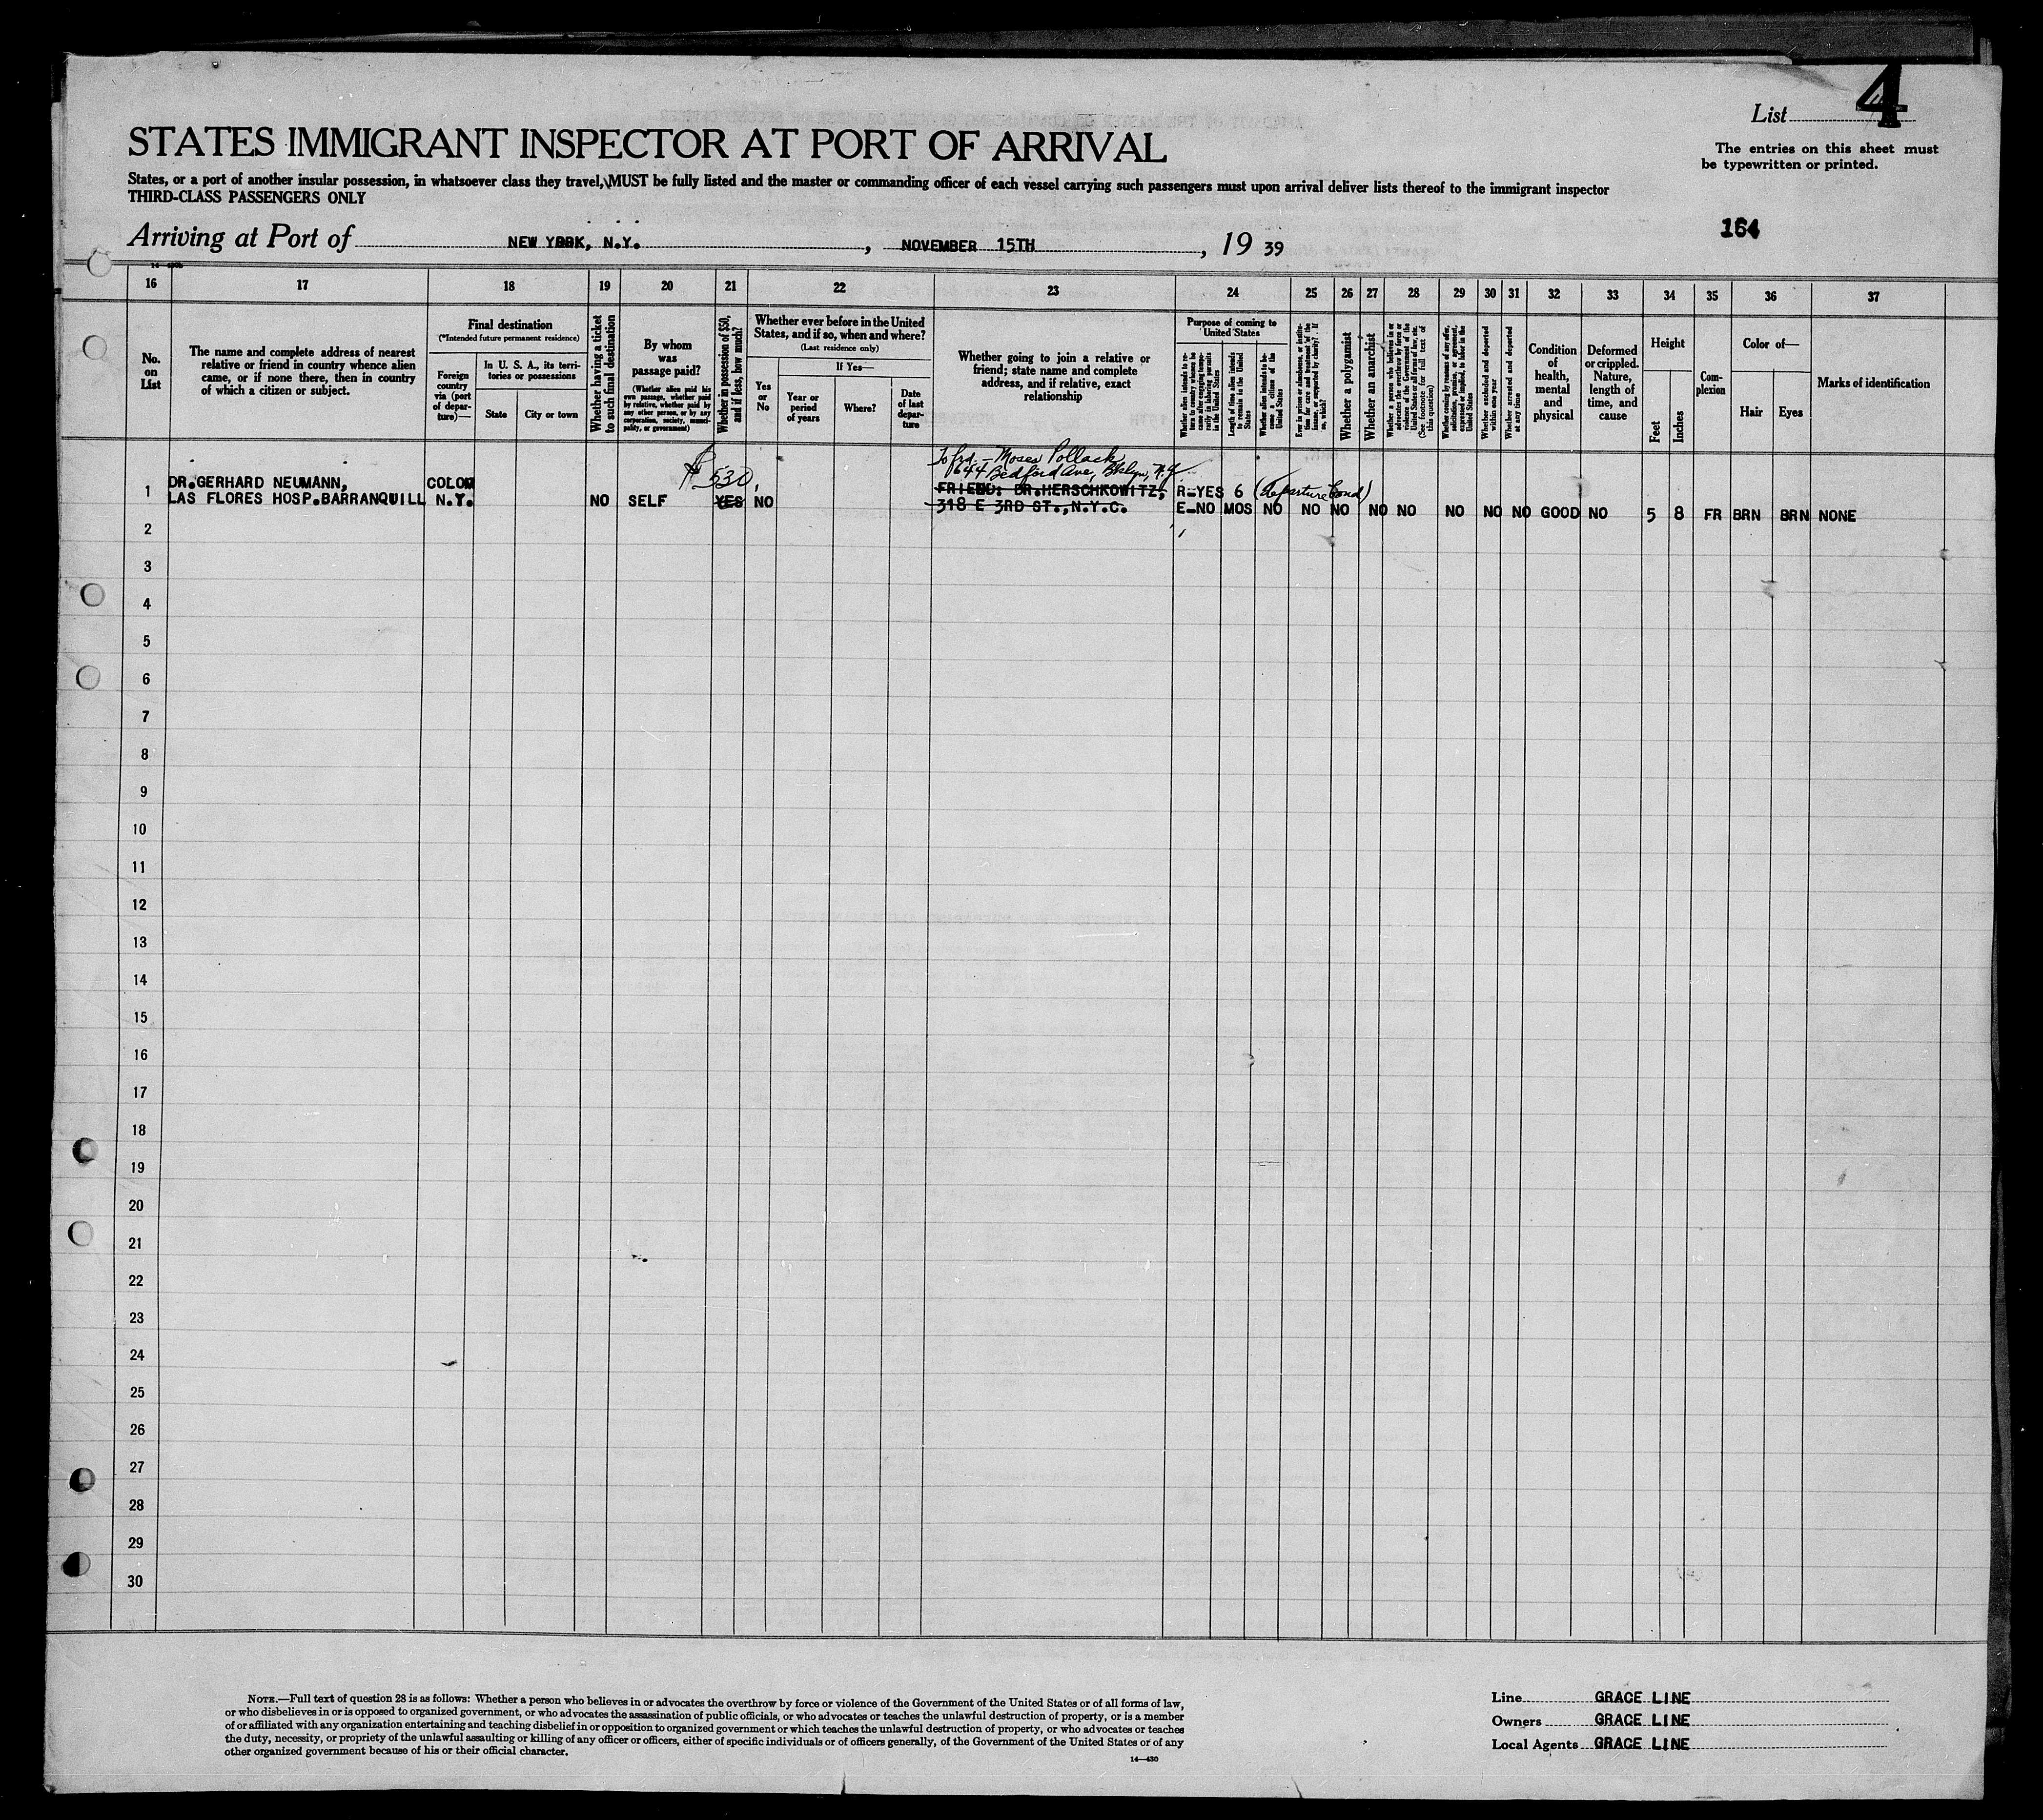 List 4
STATES IMMIGRANT INSPECTOR AT PORT OF ARRIVAL
The entries on this sheet must
be typewritten or printed.
States, or a port of another insular possession, in whatsoever class they travel, MUST be fully listed and the master or commanding officer of each vessel carrying such passengers must upon arrival deliver lists thereof to the immigrant inspector
THIRD-CLASS PASSENGERS ONLY
164
Arriving at Port of NEW YORK, N.Y., NOVEMBER 15TH, 19 39
16 17 18 19 20 21 22 23 24 25 26 27 28 29 30 31 32 33 34 35 36 37
No.
on
List
The name and complete address of nearest
relative or friend in country whence alien
came, or if none there, then in country
of which a citizen or subject.
Final destination
(*Intended future permanent residence)
Foreign
country
via (port
of depar-
ture)—
In U. S. A., its terri-
tories or possessions
State
City or town
Whether having a ticket
to such final destination
By whom
was
passage paid?
(Whether alien paid his
own passage, whether paid
by relative, whether paid by
any other person, or by any
corporation, society, munici-
pality, or government)
Whether in possession of $50,
and if less, how much?
Whether ever before in the United
States, and if so, when and where?
(Last residence only)
Yes
or
No
If Yes—
Year or
period
of years
Where?
Date
of last
depar-
ture
Whether going to join a relative or
friend; state name and complete
address, and if relative, exact
relationship
Purpose of coming to
United States
Whether alien intends to re-
turn to country whence he
came after engaging tempo-
rarily in laboring pursuits
in the United States
Length of time alien intends
to remain in the United
States
Whether alien intends to be-
come a citizen of the
United States
Ever in prison or almshouse, or institu-
tion for care and treatment of the
insane, or supported by charity? If
so, which?
Whether a polygamist
Whether an anarchist
Whether a person who believes in or
advocates the overthrow by force or
violence of the Government of the
United States or all forms of law, etc.
(See footnote for full text of
this question)
Whether coming by reason of any offer,
solicitation, promise, or agreement,
expressed or implied, to labor in the
United States
Whether excluded and deported
within one year
Whether arrested and deported
at any time
Condition
of
health,
mental
and
physical
Deformed
or crippled.
Nature,
length of
time, and
cause
Height
Feet
Inches
Com-
plexion
Color of—
Hair
Eyes
Marks of identification
To frd. - Moses Pollack
644 Bedford Ave, Bklyn, N.Y.
$530
1 DR.GERHARD NEUMANN, COLOM FRIEND: DR.HERSCHKOWITZ, R-YES 6 (departure bond)
LAS FLORES HOSP.BARRANQUILL N.Y. NO SELF YES NO 318 E 3RD ST.,N.Y.C. E-NO MOS NO NO NO NO NO NO NO NO GOOD NO 5 8 FR BRN BRN NONE
2
3
4
5
6
7
8
9
10
11
12
13
14
15
16
17
18
19
20
21
22
23
24
25
26
27
28
29
30
NOTE.—Full text of question 28 is as follows: Whether a person who believes in or advocates the overthrow by force or violence of the Government of the United States or of all forms of law,
or who disbelieves in or is opposed to organized government, or who advocates the assassination of public officials, or who advocates or teaches the unlawful destruction of property, or is a member
of or affiliated with any organization entertaining and teaching disbelief in or opposition to organized government or which teaches the unlawful destruction of property, or who advocates or teaches
the duty, necessity, or propriety of the unlawful assaulting or killing of any officer or officers, either of specific individuals or of officers generally, of the Government of the United States or of any
other organized government because of his or their official character.
14—430
Line GRACE LINE
Owners GRACE LINE
Local Agents GRACE LINE